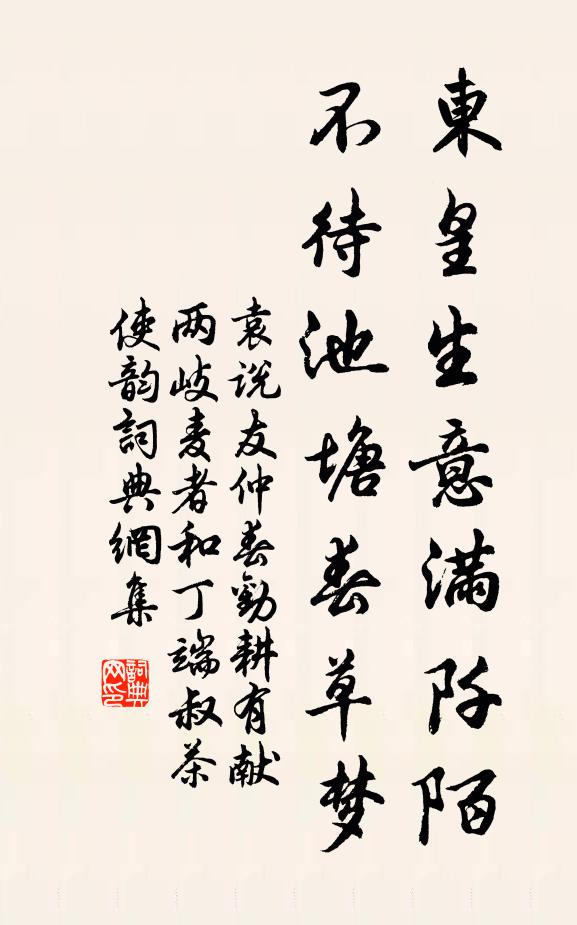 東皇生意满阡陌
不待池塘春草梦
袁说友仲春勸耕有献
两岐麦者和丁端叔茶
使韵詞典網集
詞典
网印